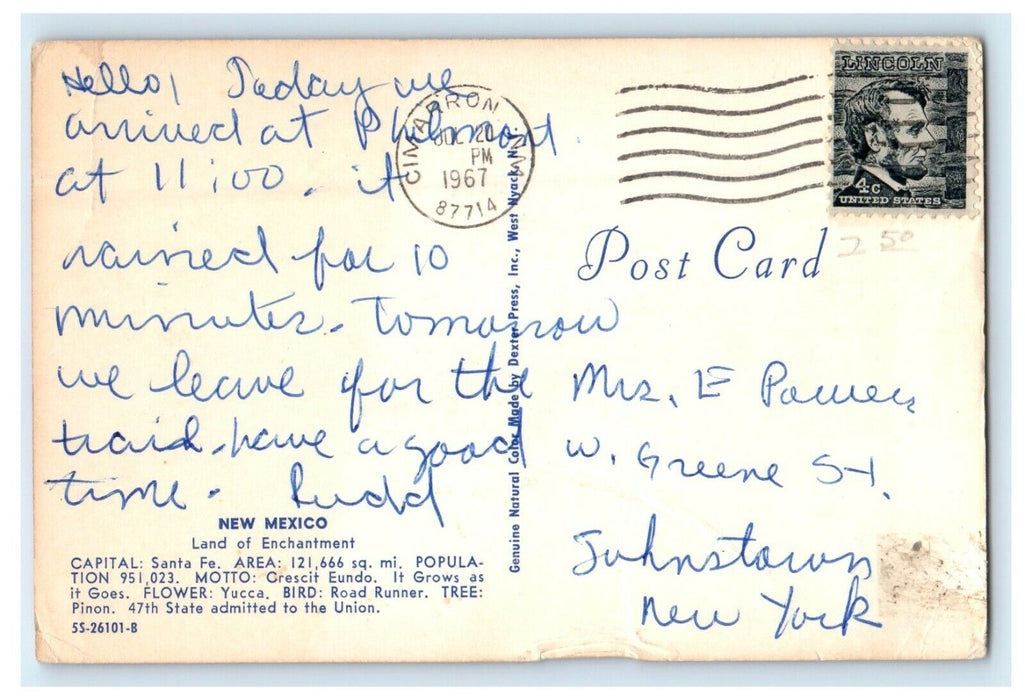 Hello! Today we
arrived at Philmont.
at 11:00. it
rained for 10
minutes. Tomorrow
we leave for the
traid. have a good
time. Rudd
NEW MEXICO
Land of Enchantment
CAPITAL: Santa Fe. AREA: 121,666 sq. mi. POPULA-
TION 951,023. MOTTO: Crescit Eundo. It Grows as
it Goes. FLOWER: Yucca. BIRD: Road Runner. TREE:
Pinon. 47th State admitted to the Union.
5S-26101-B
Genuine Natural Color Made by Dexter Press, Inc., West Nyack, N.
CIMARRON N.M.
JUL 20
PM
1967
87714
LINCOLN
4c
UNITED STATES
2 50
Post Card
Mrs. E Powers
W. Greene St.
Johnstown
New York